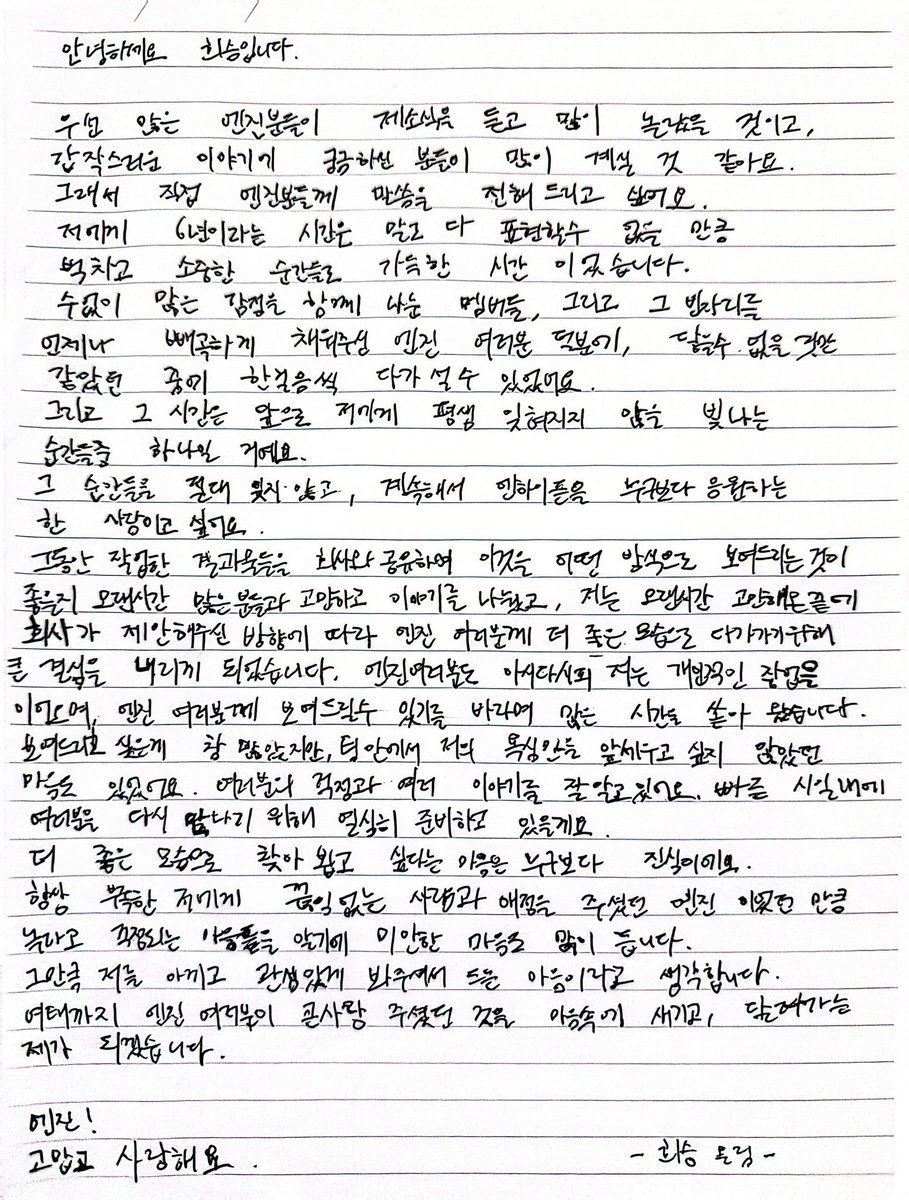 안녕하세요 희승입니다.
우선 많은 엔진분들이 제소식을 듣고 많이 놀랐을 것이고,
갑작스러운 이야기에 궁금하신 분들이 많이 계실 것 같아요.
그래서 직접 엔진분들께 말씀을 전해 드리고 싶어요.
저에게 6년이라는 시간은 말로 다 표현할수 없을 만큼
벅차고 소중한 순간들로 가득한 시간 이었습니다.
수없이 많은 감정을 함께 나눈 멤버들, 그리고 그 빈자리를
언제나 빼곡하게 채워주신 엔진 여러분 덕분에, 닿을수 없을 것만
같았던 꿈에 한걸음씩 다가 설 수 있었어요.
그리고 그 시간은 앞으로 저에게 평생 잊혀지지 않을 빛나는
순간들중 하나일 거예요.
그 순간들을 절대 잊지 않고, 계속해서 엔하이픈을 누구보다 응원하는
한 사람이고 싶어요.
그동안 작업한 결과물들을 회사와 공유하며 이것을 어떤 방식으로 보여드리는것이
좋을지 오랜시간 많은분들과 고민하고 이야기를 나눴고, 저는 오랜시간 고민해온끝에
회사가 제안해주신 방향에 따라 엔진 여러분께 더 좋은 모습으로 다가가기위해
큰 결심을 내리게 되었습니다. 엔진여러분도 아시다시피 저는 개인적인 작업을
이어오며, 엔진 여러분께 보여드릴수 있기를 바라며 많은 시간을 쏟아 왔습니다.
보여드리고 싶은게 참 많았지만, 팀 안에서 저의 욕심만을 앞세우고 싶지 않았던
마음도 있었어요. 여러분의 걱정과 여러 이야기를 잘 알고있어요. 빠른 시일내에
여러분을 다시 만나기 위해 열심히 준비하고 있을게요.
더 좋은 모습으로 찾아 뵙고 싶다는 마음은 누구보다 진심이에요.
항상 부족한 저에게 끊임없는 사랑과 애정을 주셨던 엔진 이었던 만큼
놀라고 걱정되는 마음들을 알기에 미안한 마음도 많이 듭니다.
그만큼 저를 아끼고 관심있게 봐주셔서 드는 마음이라고 생각합니다.
여태까지 엔진 여러분이 큰사랑 주셨던 것을 마음속에 새기고, 달려가는
제가 되겠습니다.
엔진!
고맙고 사랑해요. - 희승 올림 -